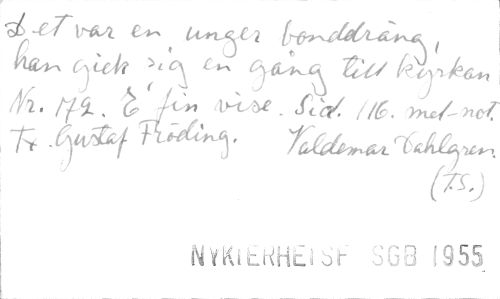 Det var en unger bonddräng,
han gick sig en gång till kyrkan
Nr. 172. E' fin vise. Sid. 116. mel-not.
Tx. Gustaf Fröding. Valdemar Dahlgren.
(T.S.)
NYKTERHETSF SGB 1955